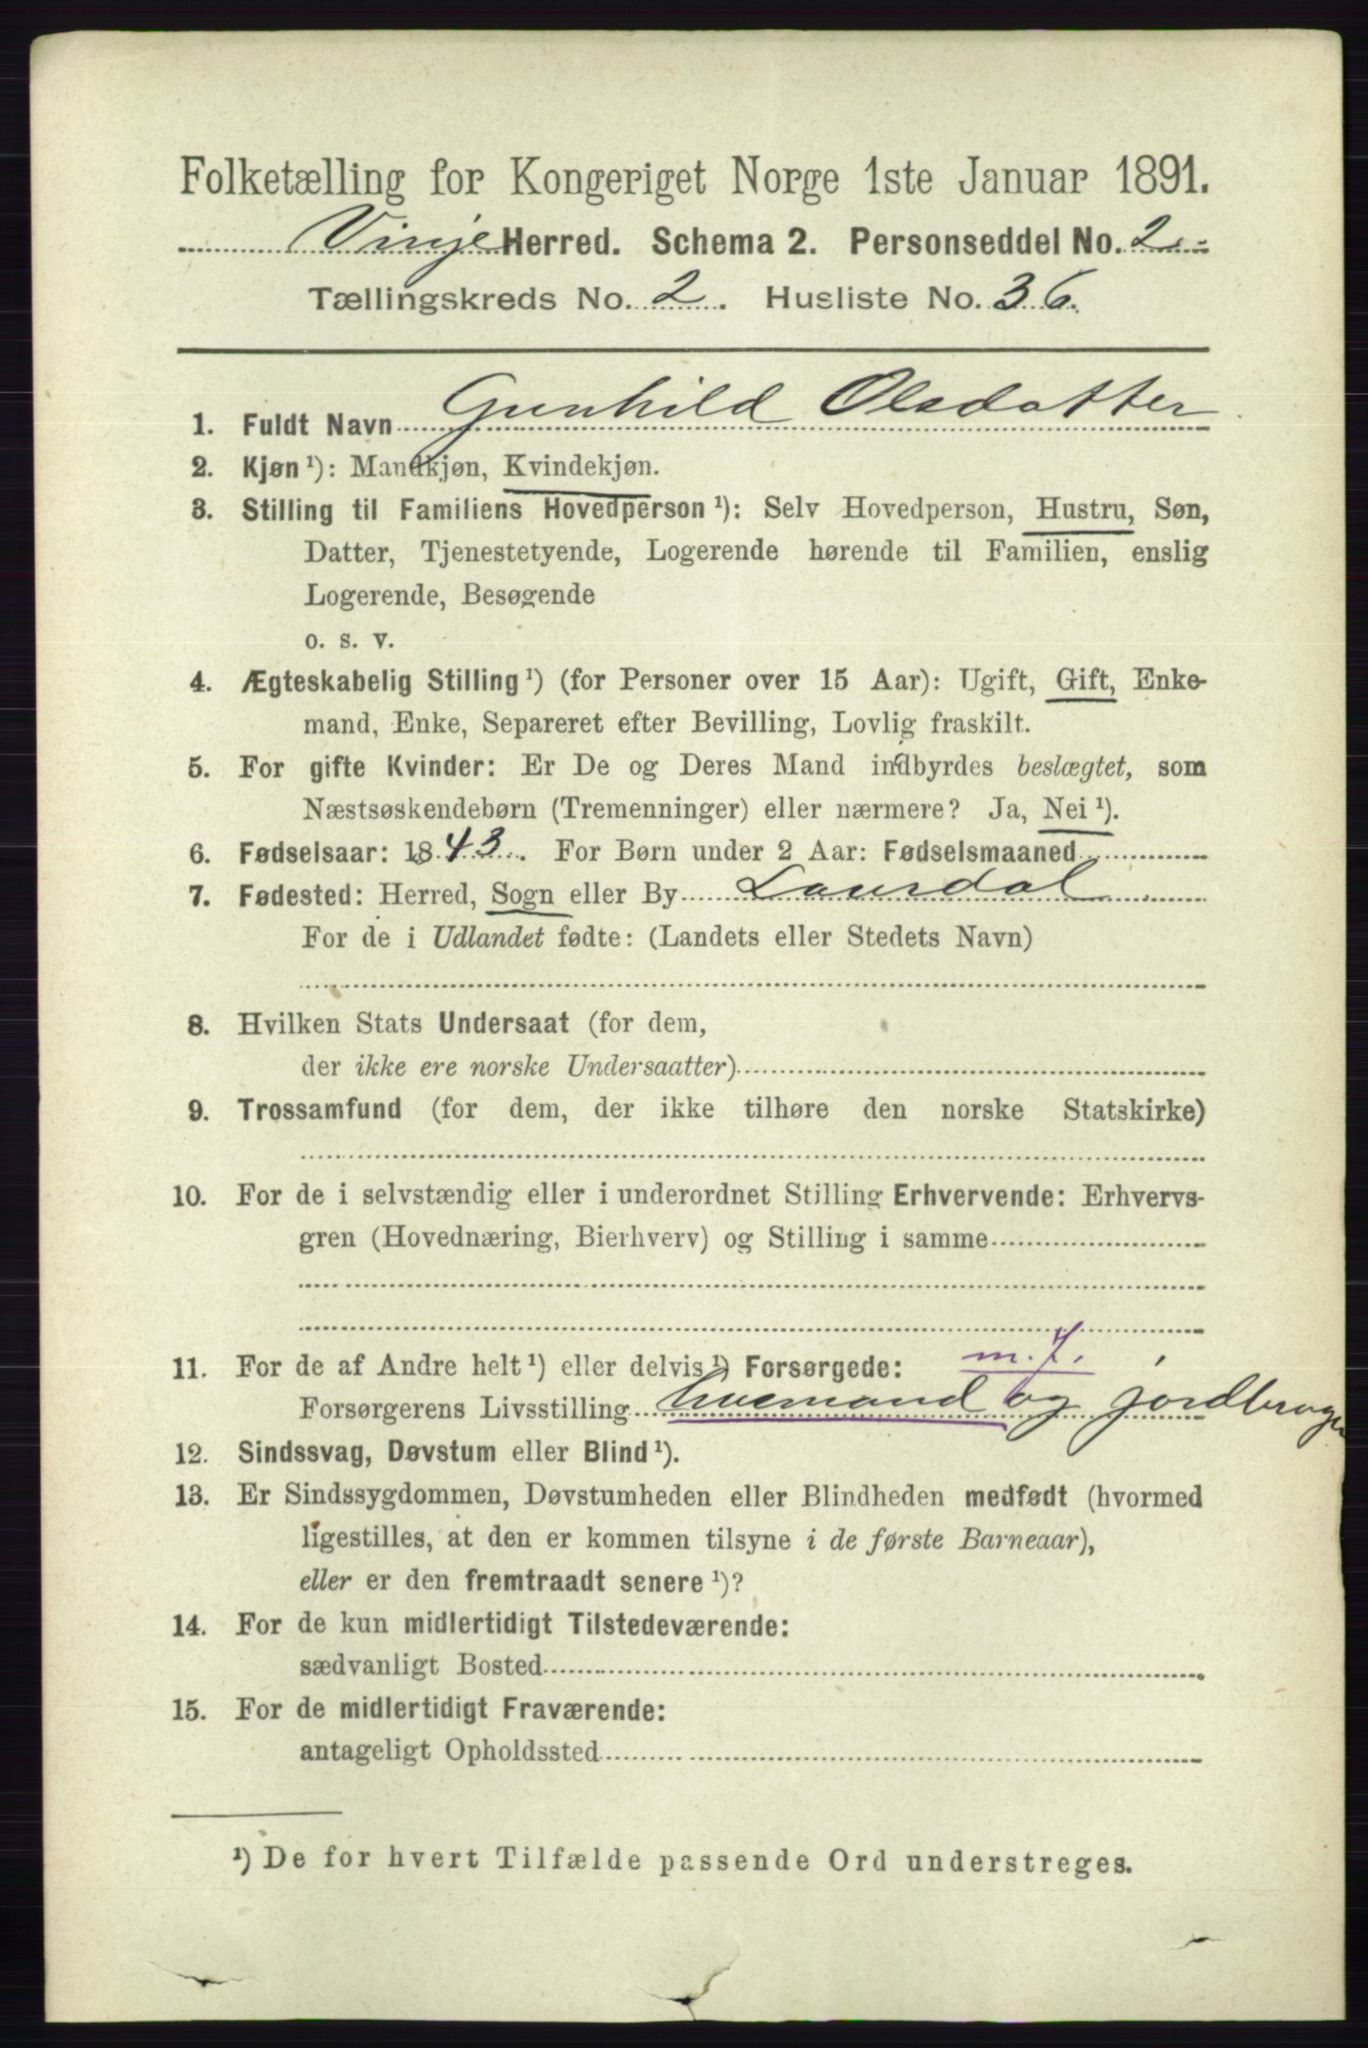 Folketælling for Kongeriget Norge 1ste Januar 1891.
Vinje Herred. Schema 2. Personseddel No. 2
Tællingskreds No. 2. Husliste No. 36.
1. Fuldt Navn Gunhild Olsdatter
2. Kjøn ¹): Mandkjøn, Kvindekjøn.
3. Stilling til Familiens Hovedperson ¹): Selv Hovedperson, Hustru, Søn,
Datter, Tjenestetyende, Logerende hørende til Familien, enslig
Logerende, Besøgende
o. s. v.
4. Ægteskabelig Stilling ¹) (for Personer over 15 Aar): Ugift, Gift, Enke-
mand, Enke, Separeret efter Bevilling, Lovlig fraskilt.
5. For gifte Kvinder: Er De og Deres Mand indbyrdes beslægtet, som
Næstsøskendebørn (Tremenninger) eller nærmere? Ja, Nei ¹).
6. Fødselsaar: 1843. For Børn under 2 Aar: Fødselsmaaned
7. Fødested: Herred, Sogn eller By Laurdal
For de i Udlandet fødte: (Landets eller Stedets Navn)
8. Hvilken Stats Undersaat (for dem,
der ikke ere norske Undersaatter)
9. Trossamfund (for dem, der ikke tilhøre den norske Statskirke)
10. For de i selvstændig eller i underordnet Stilling Erhvervende: Erhvervs-
gren (Hovednæring, Bierhverv) og Stilling i samme
11. For de af Andre helt ¹) eller delvis ¹) Forsørgede:
Forsørgerens Livsstilling og jordbruger
12. Sindssvag, Døvstum eller Blind ¹).
13. Er Sindssygdommen, Døvstumheden eller Blindheden medfødt (hvormed
ligestilles, at den er kommen tilsyne i de første Barneaar),
eller er den fremtraadt senere ¹)?
14. For de kun midlertidigt Tilstedeværende:
sædvanligt Bosted
15. For de midlertidigt Fraværende:
antageligt Opholdssted
¹) De for hvert Tilfælde passende Ord understreges.